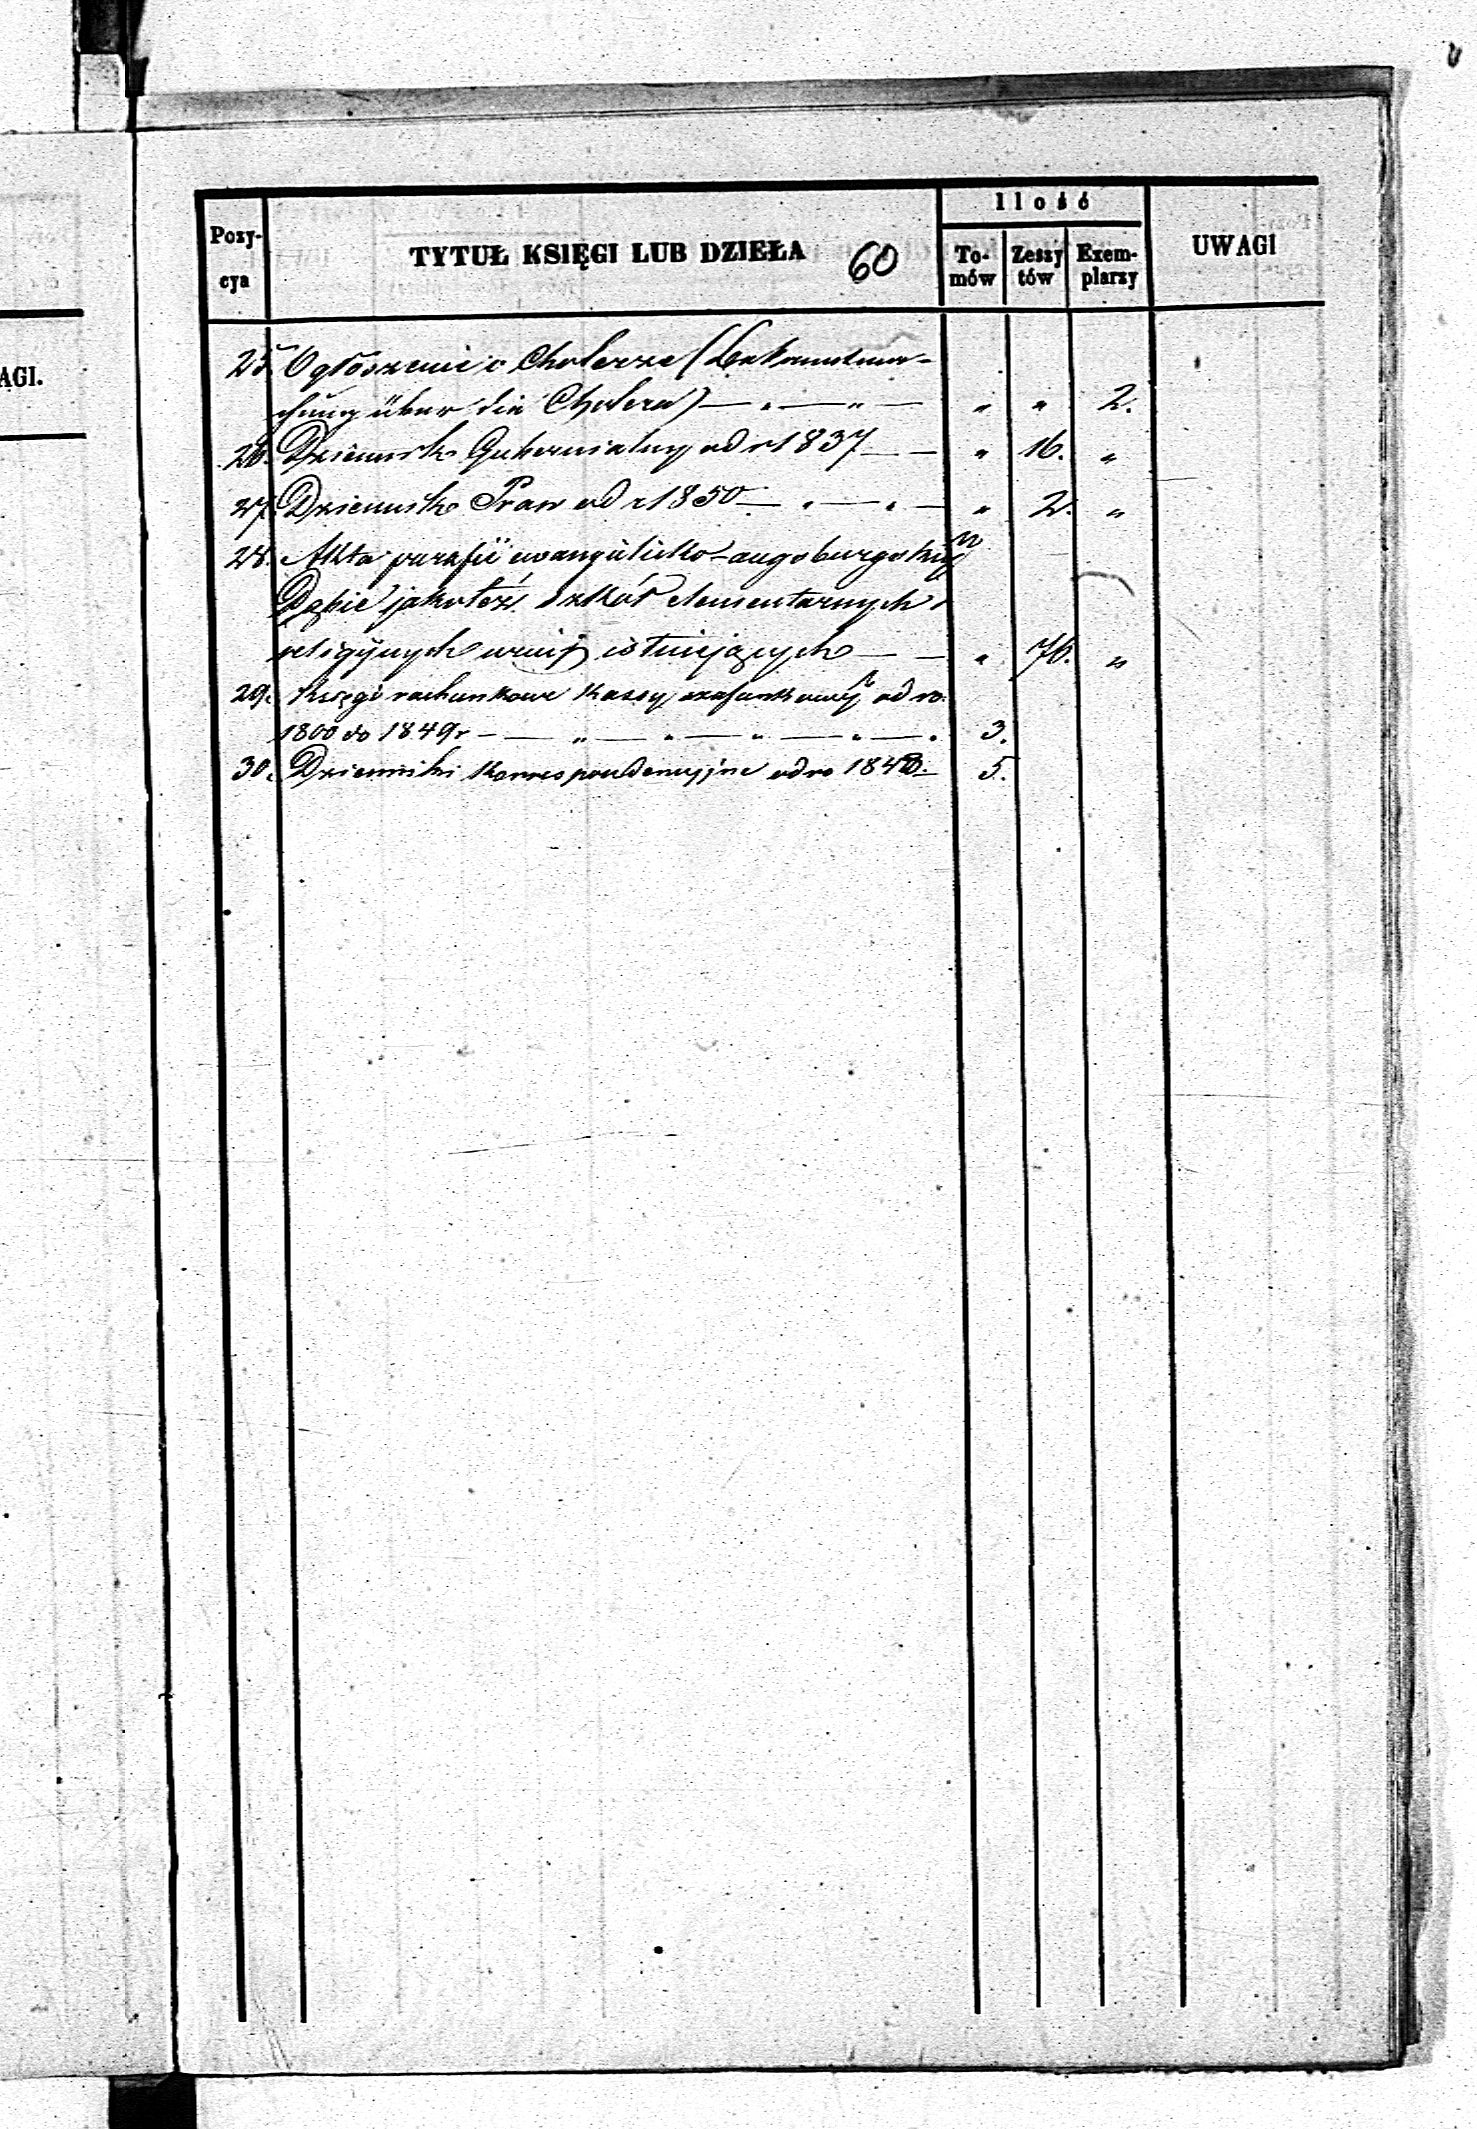 AGI.
Pozy-
cya
TYTUŁ KSIĘGI LUB DZIEŁA
60
Ilość
To-
mów
Zeszy
tów
Exem-
plarzy
UWAGI
25. Ogłoszenie o Cholerze (Bekanntma-
chung über die Cholera) — „ — „ — „ „ 2.
26. Dziennik Gubernialny od r 1837 — — „ 16. „
27. Dziennik Praw od r 1850 — „ — „ — „ 2. „
28. Akta parafii ewangelicko-augsburgskiej w
Dąbie jakoteż szkół elementarnych
religijnych w niej istniejących — — „ 76. „
29. Księgi rachunkowe Kassy od ro.
1800 do 1849 r — — „ — „ — „ — „ — „ 3.
30. Dzienniki korrespondencyjne od ro 5.